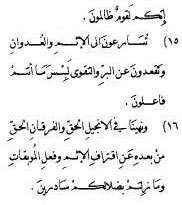 إنكم لقوم ظالمون.
(١٥) تسارعون الى الإثم والعدوان
وتقعدون عن البر والتقوى لبئس ما انتم
فاعلون.
(١٦) ونهينا في الانجيل الحق والفرقان الحق
من بعده عن اقتراف الإثم وفعل الموبقات
وما زلتم بضلالكم سادرين.